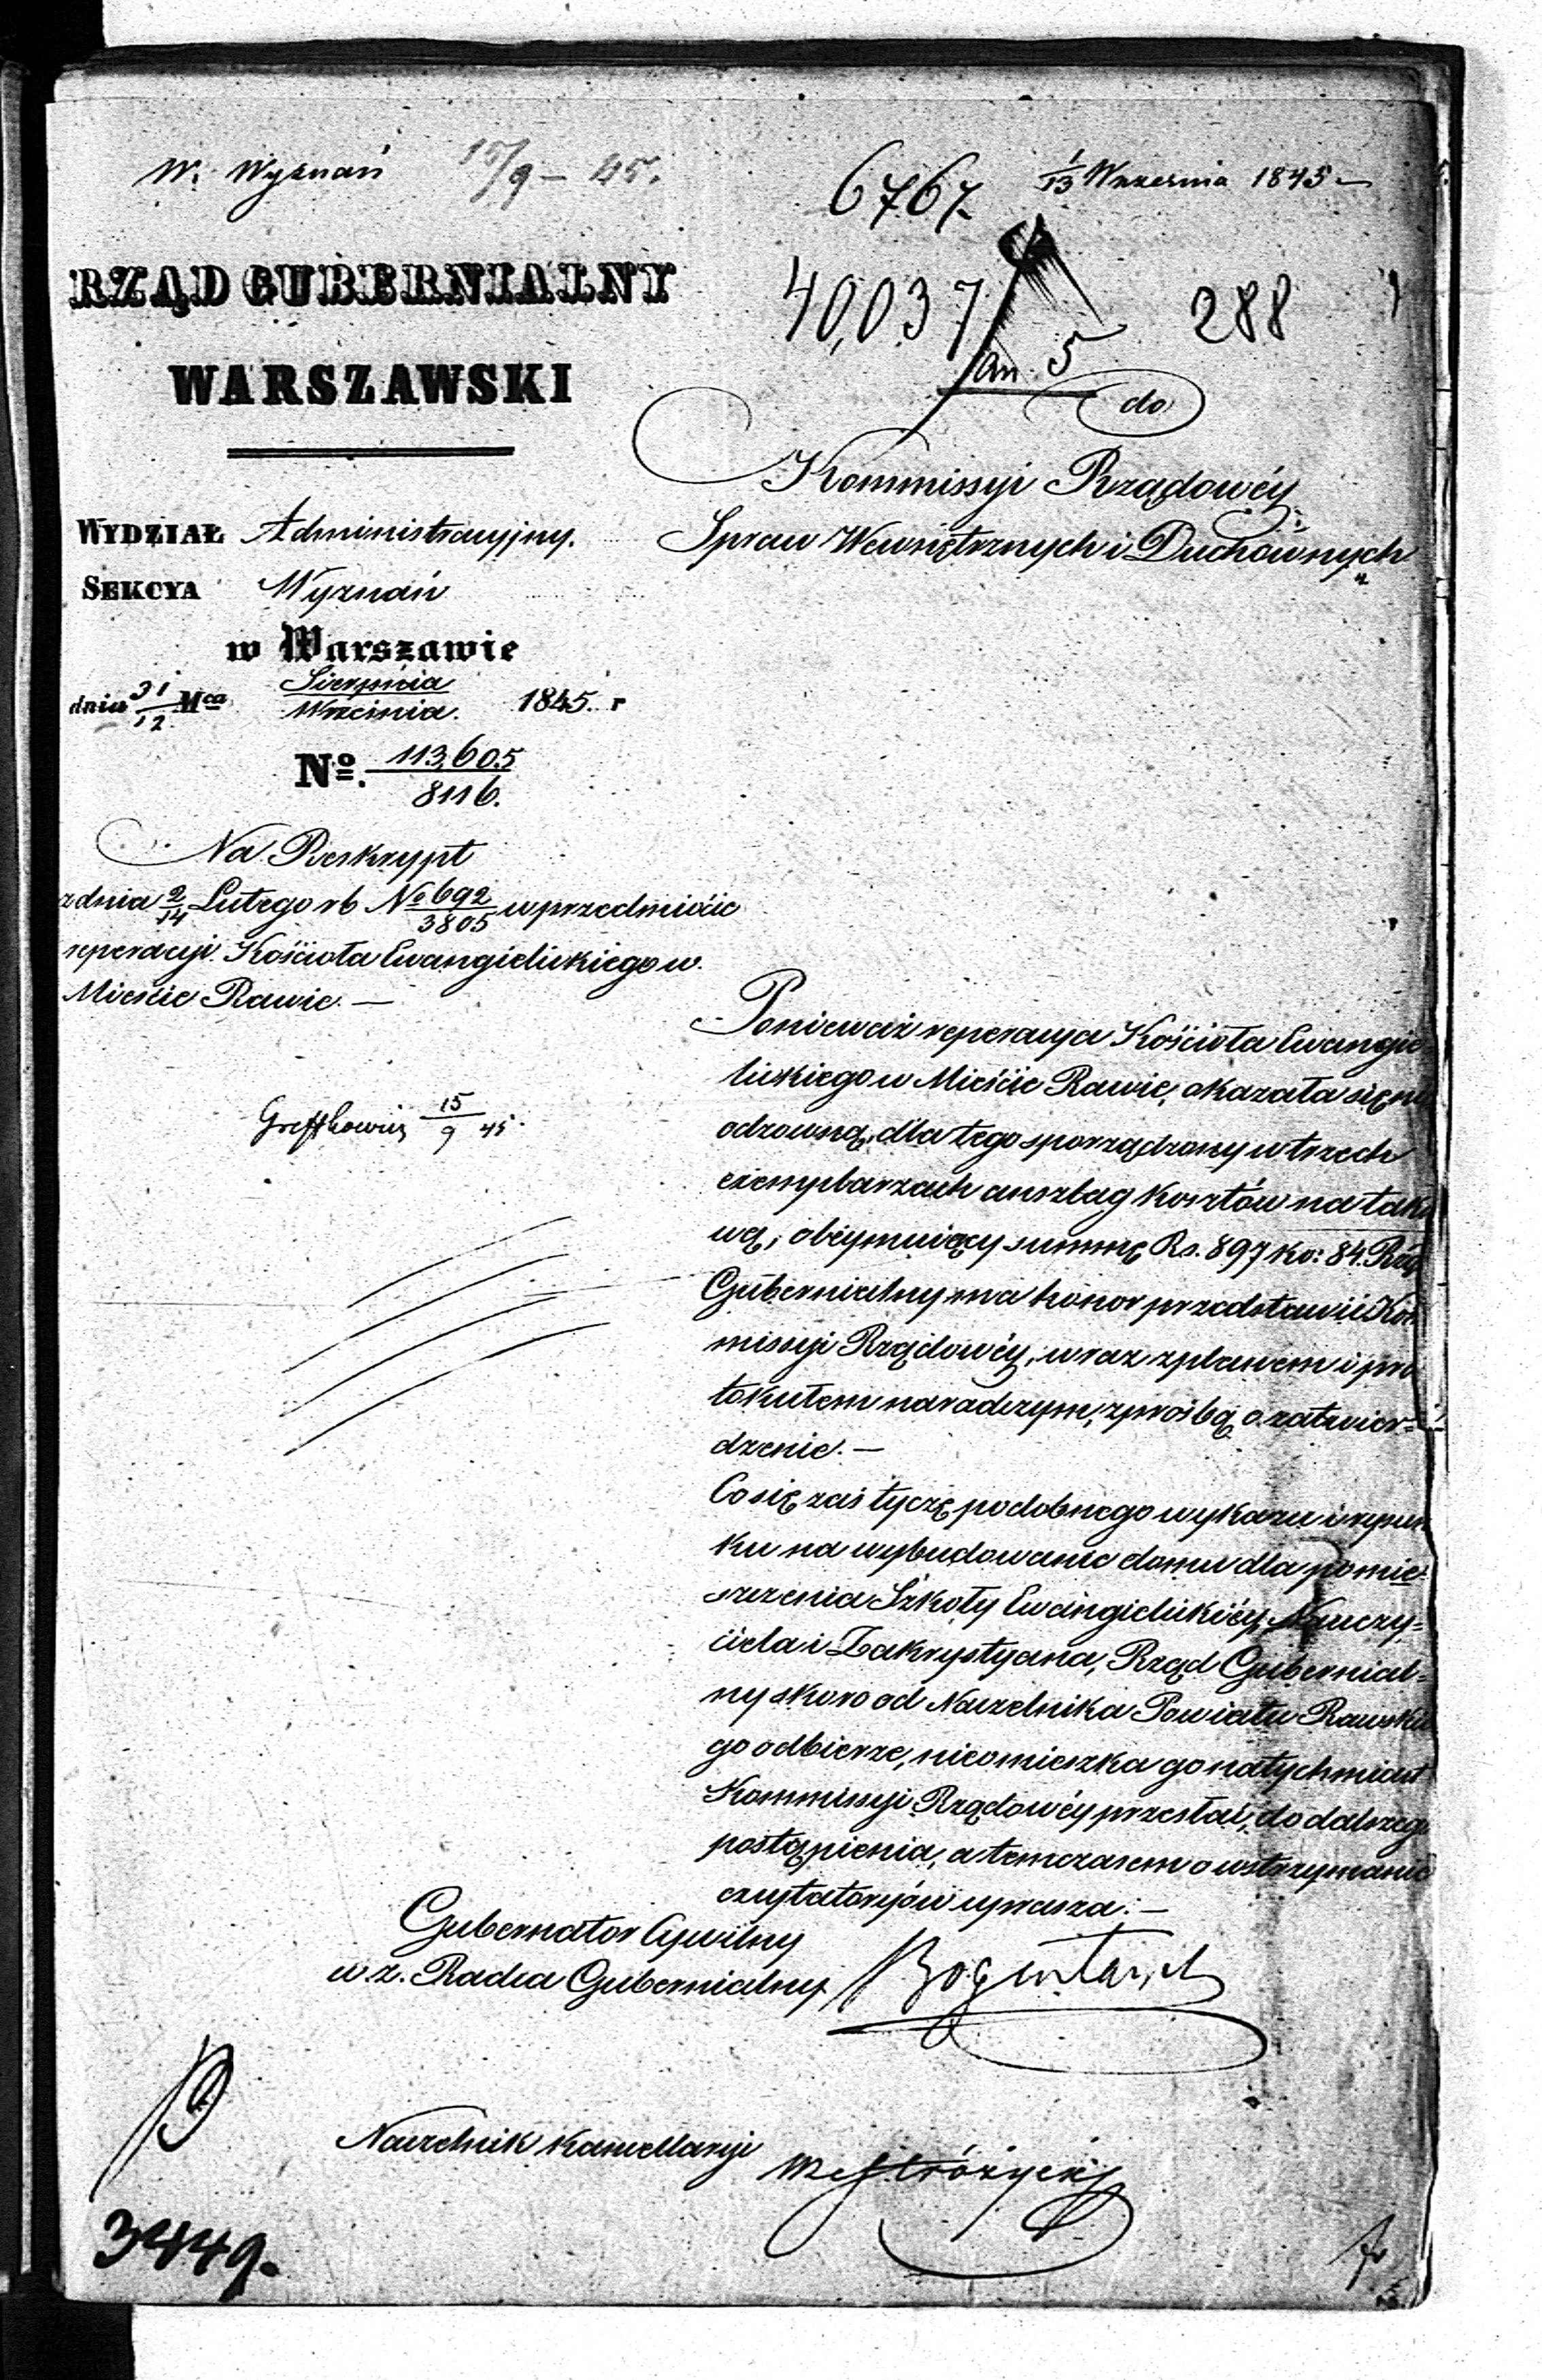 W. Wyznań 15/9 – 45.
6767. 1/13 Września 1845 –
RZĄD GUBERNIALNY
WARSZAWSKI
40,037
an. 5
288
do
Kommissyi Rządowéy
Spraw Wewnętrznych i Duchownych
WYDZIAŁ Administracyjny.
SEKCYA Wyznań
w Warszawie
dnia 31/12 Mca Sierpnia/Września. 1845. r
No. 113,605/8116.
Na Reskrypt
z dnia 2/14 Lutego rb No 692/3805 w przedmiocie
reperacyi Kościoła Ewangielickiego w
Mieście Rawie. –
15/9 45.
Ponieważ reperacya Kościoła Ewangie-
lickiego w Mieście Rawie, okazała się nie
odzowną, dla tego sporządzony w trzech
exemplarzach anszlag kosztów na tako
wą, obejmujący summę Rs. 897 ko: 84. Rząd
Gubernialny ma honor przedstawić Kom
missyi Rządowéy, wraz z planem i pro
tokułem naradczym, z prośbą o zatwier-
dzenie. –
Co się zaś tyczę podobnego wykazu i rysun
ku na wybudowanie domu dla pomie-
szczenia Szkoły Ewangielickiéy, Nauczy-
ciela i Zakrystyana, Rząd Gubernial-
ny skoro od Naczelnika Powiatu Rawskie
go odbierze, nieomieszka go natychmiast
Kommissyi Rządowéy przesłać, do dalszego
postąpienia, a temczasem o wstrzymanie
excytatoryów uprasza. –
Gubernator Cywilny
w. z. Radca Gubernialny
Naczelnik Kancellaryi
3449.